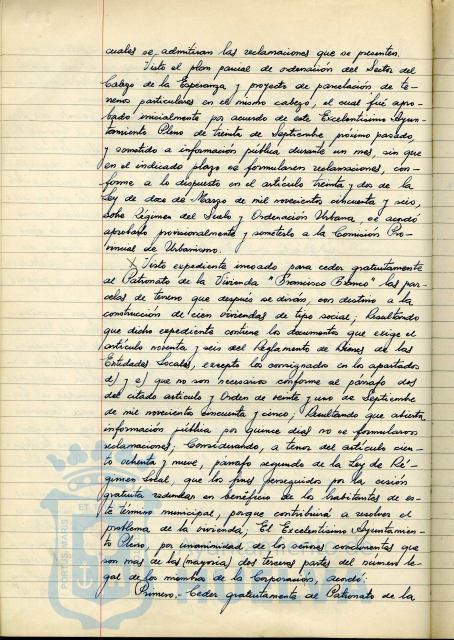 cuales se admitiran las reclamaciones que se presenten.
Visto el plan parcial de ordenación del Sector del
Cabezo de la Esperanza y proyecto de parcelación de te-
rrenos particulares en el mismo cabezo, el cual fué apro-
bado inicialmente por acuerdo de este Excelentísimo Ayun-
tamiento Pleno de treinta de Septiembre próximo pasado,
y sometido a información pública durante un mes, sin que
en el indicado plazo se formularan reclamaciones, con-
forme a lo dispuesto en el artículo treinta y dos de la
Ley de doce de Marzo de mil novecientos cincuenta y seis,
sobre Régimen del Suelo y Ordenación Urbana, se acordó
aprobarlo provisionalmente y someterlo a la Comisión Pro-
vincial de Urbanismo.
Visto expediente incoado para ceder gratuitamente
al Patronato de la Vivienda "Francisco Franco" las par-
celas de terreno que después se dirán, con destino a la
construcción de cien viviendas de tipo social; Resultando
que dicho expediente contiene los documentos que exige el
artículo noventa y seis del Reglamento de Bienes de las
Entidades Locales, excepto los consignados en los apartados
d) y e) que no son necesarios conforme al párrafo dos
del citado artículo y Orden de veinte y uno de Septiembre
de mil novecientos cincuenta y cinco; Resultando que abierta
información pública por quince días no se formularon
reclamaciones; Considerando, a tenor del artículo cien-
to ochenta y nueve, párrafo segundo de la Ley de Ré-
gimen Local, que los fines perseguidos por la cesión
gratuita redundan en beneficio de los habitantes de es-
te término municipal, porque contribuirá a resolver el
problema de la vivienda; El Excelentísimo Ayuntamien-
to Pleno, por unanimidad de los señores concurrentes que
son mas de las (mayoria) dos terceras partes del número le-
gal de los miembros de la Corporación, acordó:
Primero.- Ceder gratuitamente al Patronato de la
PORTUS MARIS ET